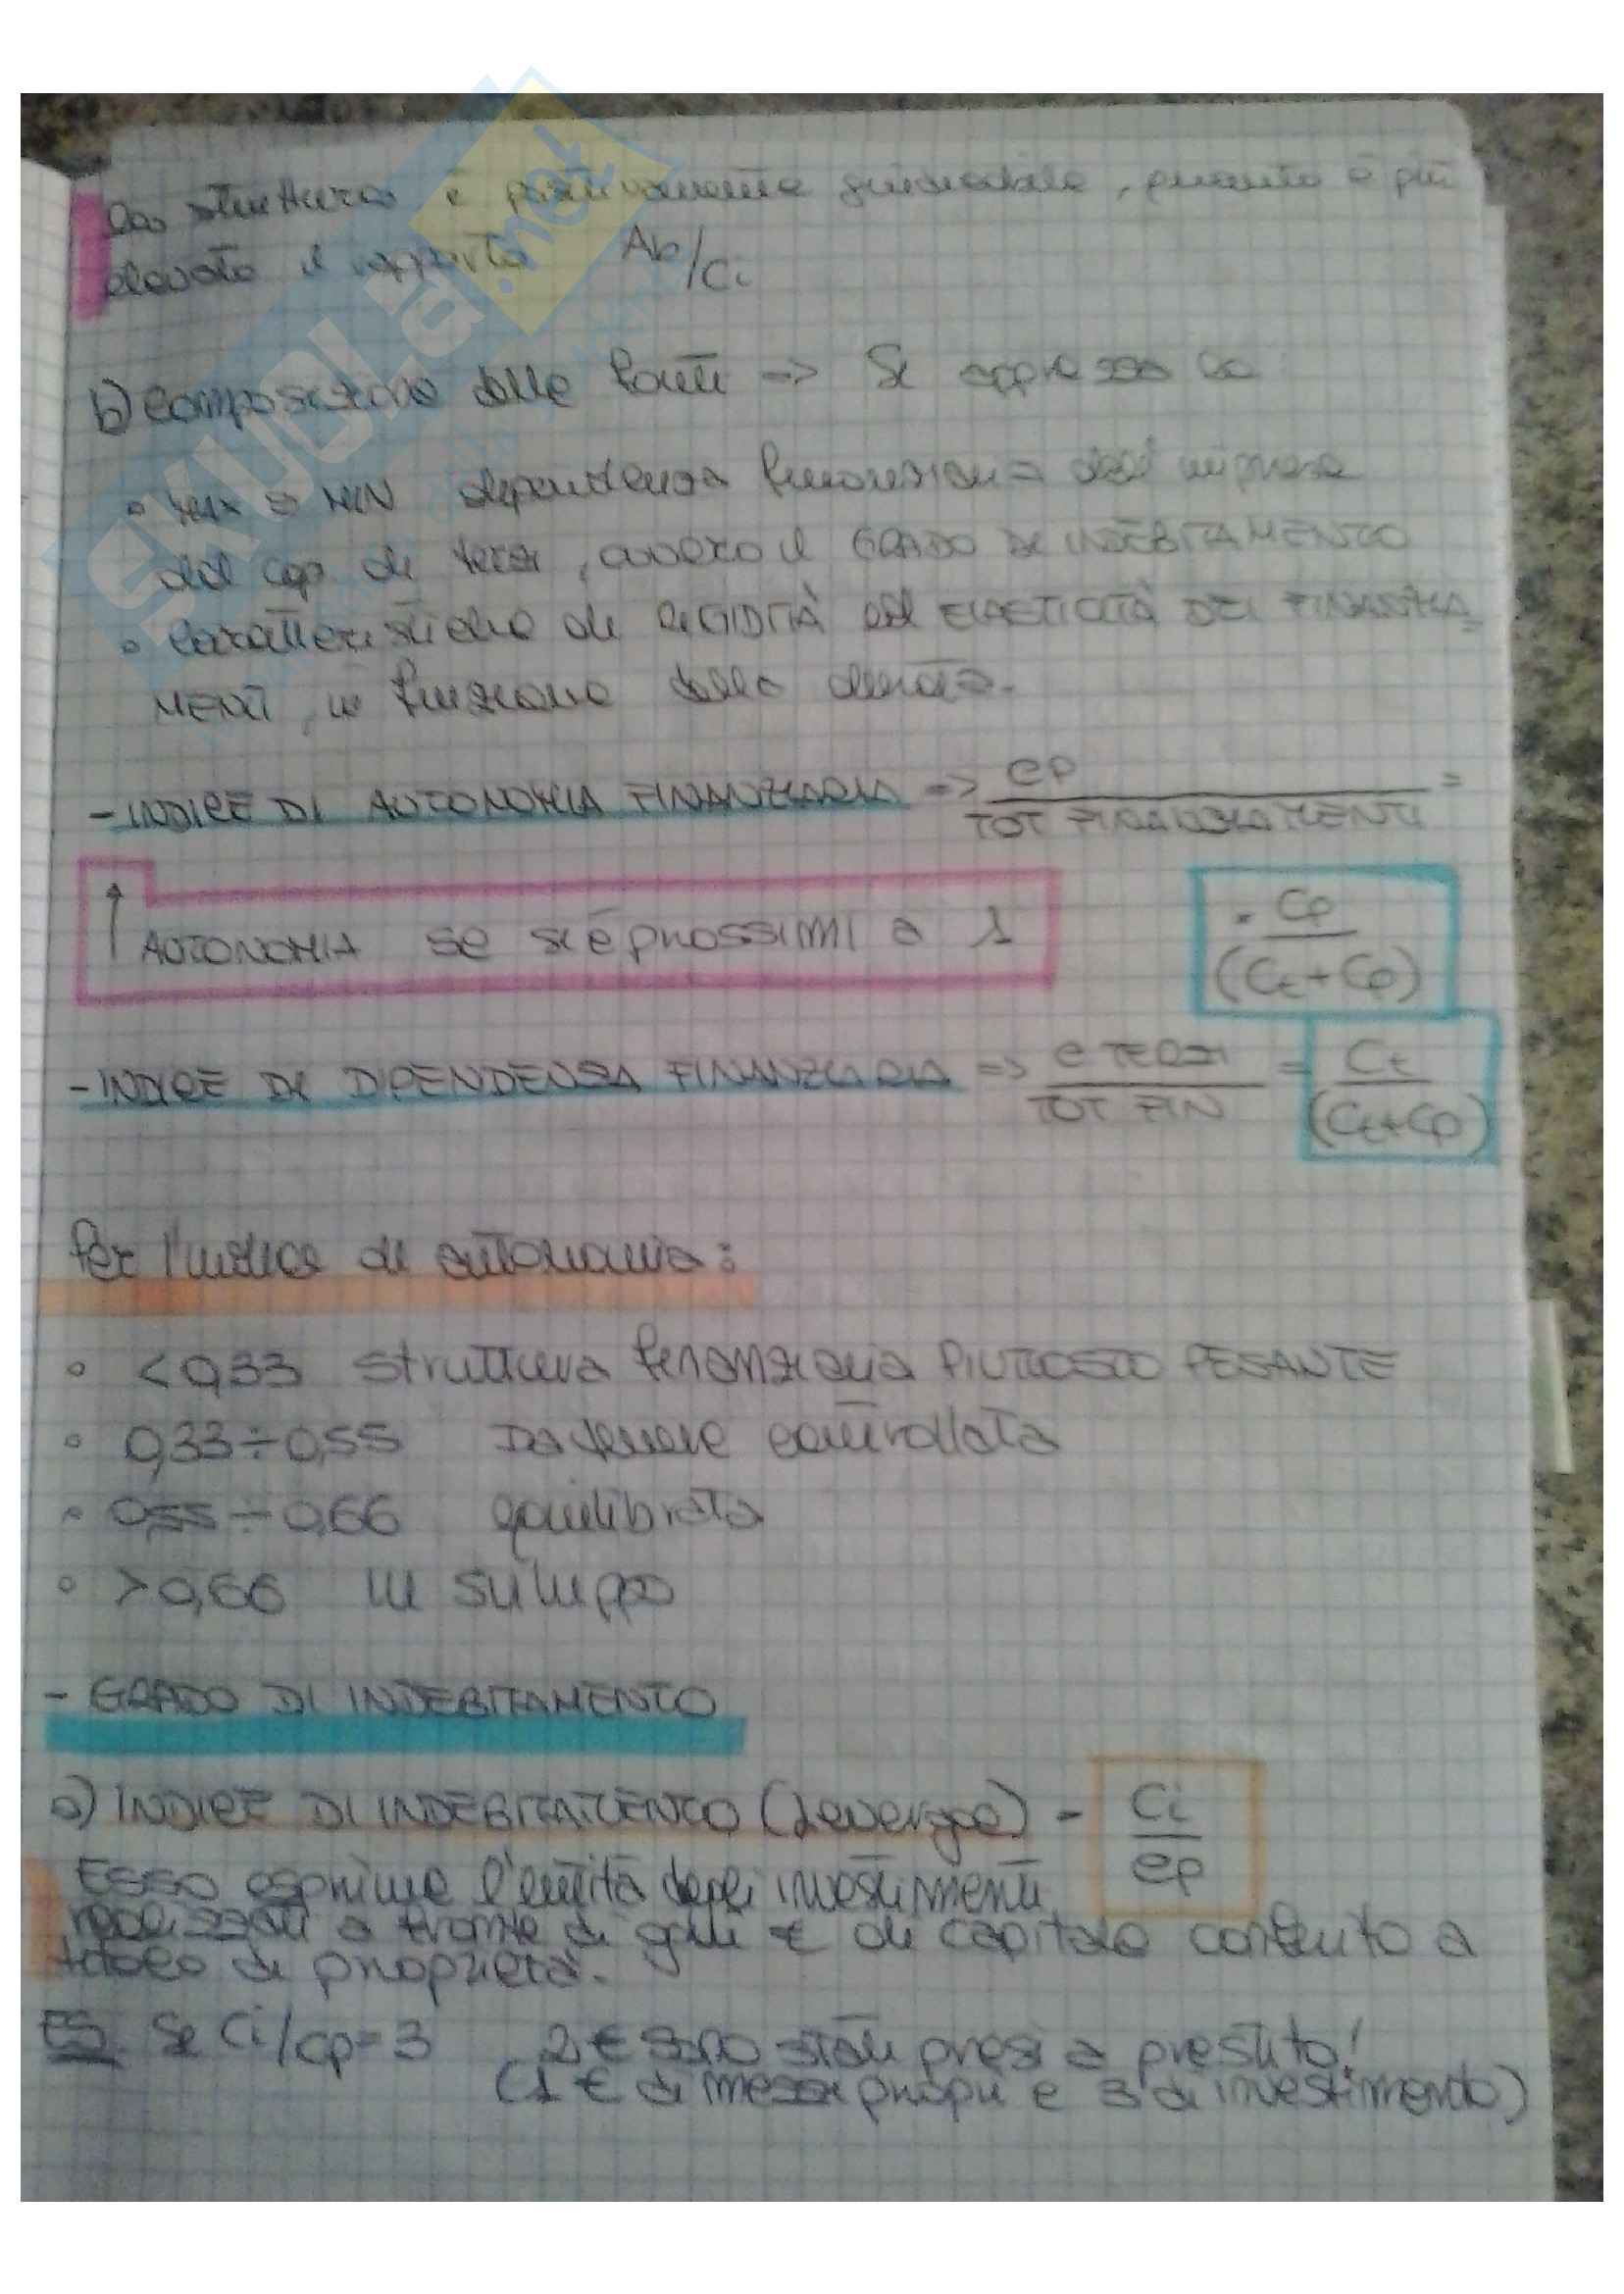 La struttura è positivamente giudicabile, quanto è più
elevato il rapporto Ab/Ci
b) composizione delle fonti => Si apprezza la
• MAX o MIN dipendenza finanziaria dell'impresa
dal cap di terzi, ovvero il GRADO DI INDEBITAMENTO
• Caratteristiche di RIGIDITÀ ed ELASTICITÀ DEI FINANZIA=
MENTI, in funzione della durata.
- INDICE DI AUTONOMIA FINANZIARIA => CP / TOT FINANZIAMENTI =
↑ AUTONOMIA se si è prossimi a 1
= Cp / (Ct+Cp)
- INDICE DI DIPENDENZA FINANZIARIA => C TERZI / TOT FIN = Ct / (Ct+Cp)
Per l'indice di autonomia:
• <0,33 struttura finanziaria PIUTTOSTO PESANTE
• 0,33÷0,55 Da tenere controllata
• 0,55÷0,66 equilibrata
• >0,66 in sviluppo
- GRADO DI INDEBITAMENTO
a) INDICE DI INDEBITAMENTO (Leverage) = Ci / Cp
Esso esprime l'entità degli investimenti
realizzati a fronte di ogni € di capitale conferito a
titolo di proprietà.
ES. Se Ci/Cp=3 2€ sono stati presi a prestito!
(1€ di mezzi propri e 3 di investimento)
SKUOLA.net